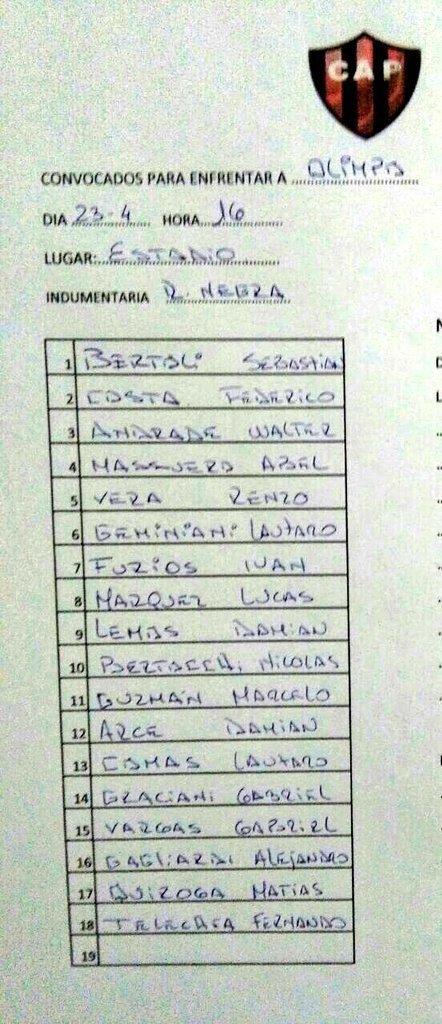 CAP
CONVOCADOS PARA ENFRENTAR A OLIMPO
DIA 23-4 HORA 16
LUGAR: ESTADIO
INDUMENTARIA R. NEGRA
1 BERTOLI SEBASTIAN
2 COSTA FEDERICO
3 ANDRADE WALTER
4 MASSUERO ABEL
5 VERA RENZO
6 GEMINIANI LAUTARO
7 FURIOS IVAN
8 MARQUEZ LUCAS
9 LEMOS DAMIAN
10 BERTOCCHI NICOLAS
11 GUZMÁN MARCELO
12 ARCE DAMIAN
13 COMAS LAUTARO
14 GRACIANI GABRIEL
15 VARGAS GABRIEL
16 GAGLIARDI ALEJANDRO
17 QUIROGA MATIAS
18 TELECHEA FERNANDO
19